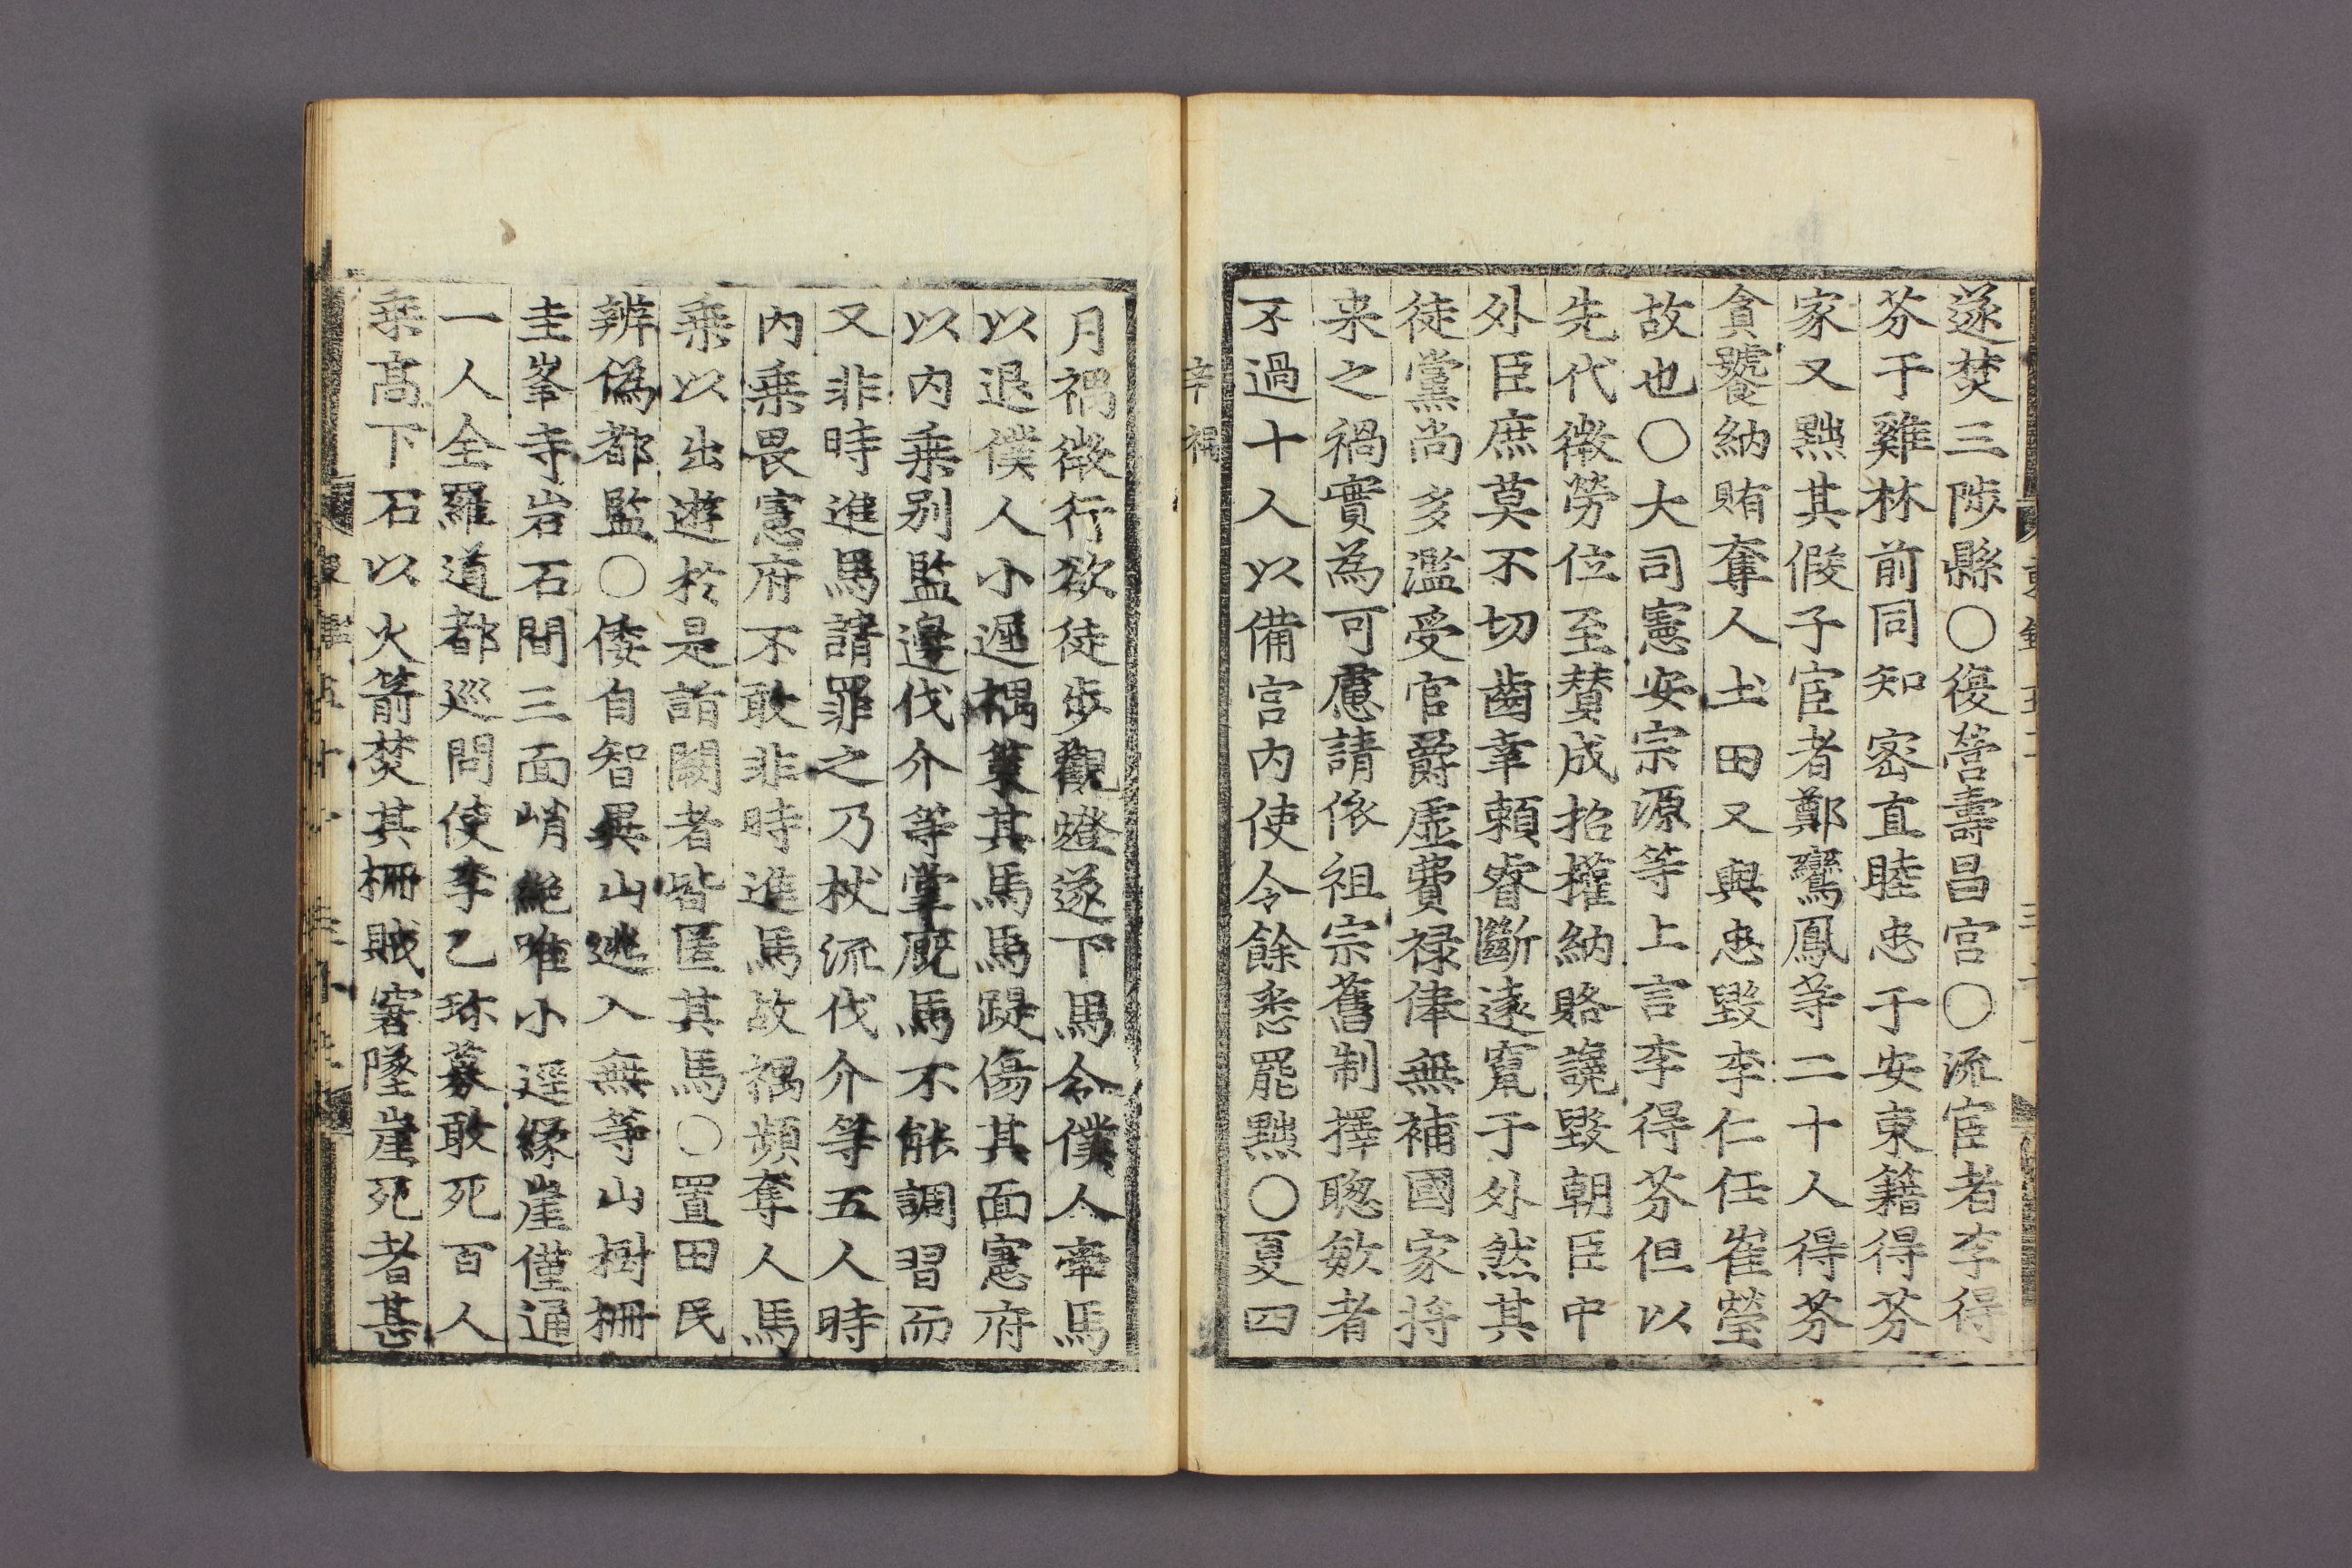 遂焚三陟縣○復營壽昌宮○流宦者李得
芬于雞林前同知密直睦忠于安東籍得芬
家又黜其假子宦者鄭鸞鳳等二十人得芬
貪饕納賄奪人土田又與忠毀李仁任崔瑩
故也○大司憲安宗源等上言李得芬但以
先代微勞位至贊成招權納賂讒毀朝臣中
外臣庶莫不切齒幸賴睿斷遠竄于外然其
徒黨尚多濫受官爵虛費祿俸無補國家將
来之禍實為可慮請依祖宗舊制擇聦敏者
不過十人以備宮內使令餘悉罷黜○夏四
辛禑
月禑微行欲徒步觀燈遂下馬令僕人牽馬
以退僕人小遲禑策其馬馬踶傷其面憲府
以內乗別監邊伐介等掌廐馬不能調習而
又非時進馬請罪之乃杖流伐介等五人時
內乗畏憲府不敢非時進馬故禑頻奪人馬
乗以出遊於是詣闕者皆匿其馬○置田民
辨偽都監○倭自智異山逃入無等山樹柵
圭峯寺岩石間三面峭絶唯小逕緣崖僅通
一人全羅道都巡問使李乙珎募敢死百人
乗髙下石以火箭焚其柵賊窘墜崖死者甚